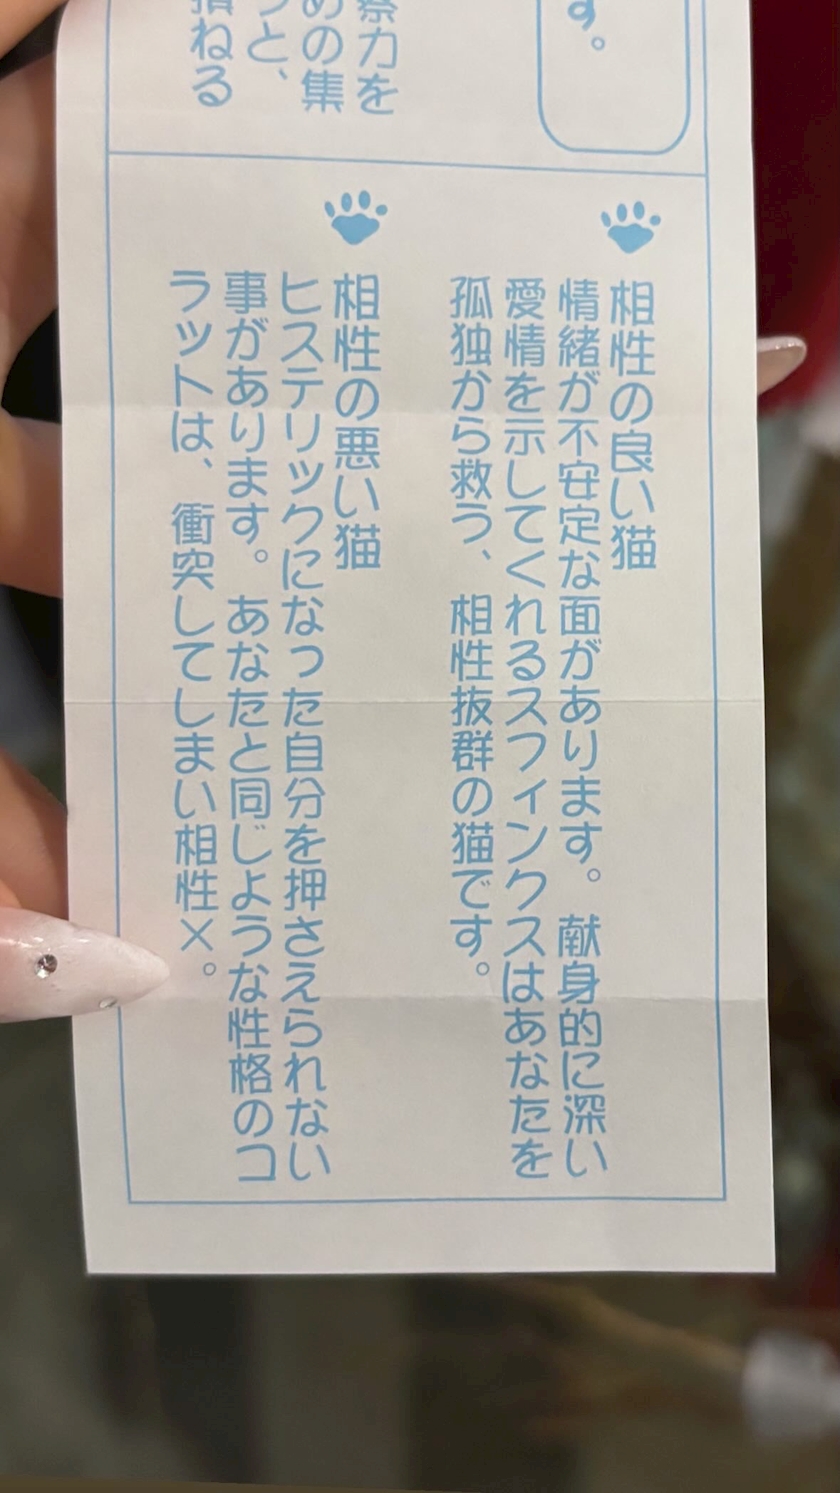 す。
察力を
めの集
つと、
損ねる
相性の良い猫
情緒が不安定な面があります。献身的に深い
愛情を示してくれるスフィンクスはあなたを
孤独から救う、相性抜群の猫です。
相性の悪い猫
ヒステリックになった自分を押さえられない
事があります。あなたと同じような性格のコ
ラットは、衝突してしまい相性×。